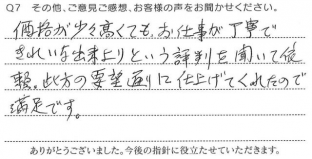 Q7 その他、ご意見ご感想、お客様の声をお聞かせください。
価格が少々高くても、お仕事が丁寧で
きれいな出来上りという評判を聞いて依
頼。此方の要望通りに仕上げてくれたので
満足です。
ありがとうございました。今後の指針に役立たせていただきます。